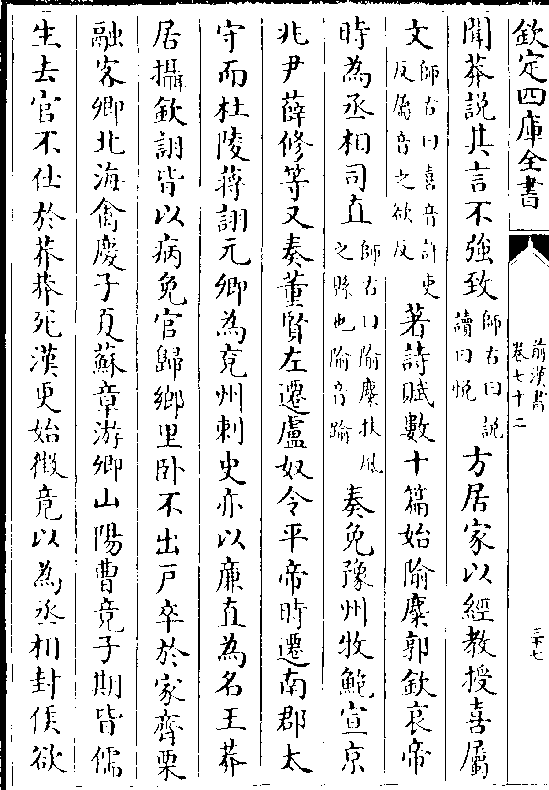 欽定四庫全書
前漢書
卷七十二
三十七
聞莽說其言不強致師古曰說讀曰悅方居家以經教授喜屬
文師古曰喜音許吏反屬音之欲反著詩賦數十篇始隃麋郭欽哀帝
時為丞相司直師古曰隃麋扶風之縣也隃音踰奏免豫州牧鮑宣京
兆尹薛修等又奏董賢左遷盧奴令平帝時遷南郡太
守而杜陵蔣詡元卿為兖州刺史亦以廉直為名王莽
居攝欽詡皆以病免官歸鄉里卧不出戸卒於家齊栗
融客卿北海禽慶子夏蘇章游卿山陽曹竟子期皆儒
生去官不仕於莽莽死漢更始徵竟以為丞相封侯欲